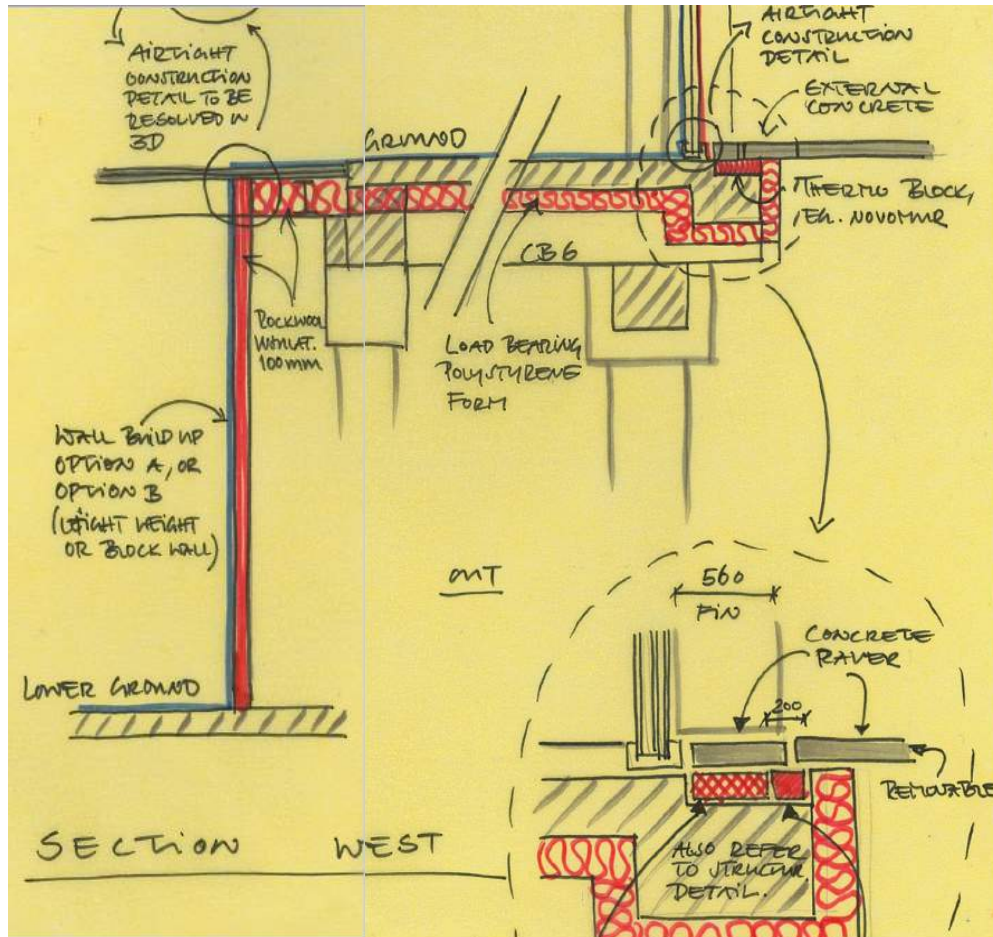 AIRTIGHT
CONSTRUCTION
DETAIL TO BE
RESOLVED IN
3D
GROUND
AIRTIGHT
CONSTRUCTION
DETAIL
EXTERNAL
CONCRETE
THERMO BLOCK,
EG. NOVOMUR
CB6
ROCKWOOL
100mm
LOAD BEARING
POLYSTYRENE
FORM
WALL BUILD UP
OPTION A, OR
OPTION B
(LIGHT WEIGHT
OR BLOCK WALL)
LOWER GROUND
OUT
560
FIN
CONCRETE
PAVER
200
REMOVABLE
ALSO REFER
TO STRUCTUR
DETAIL.
SECTION WEST